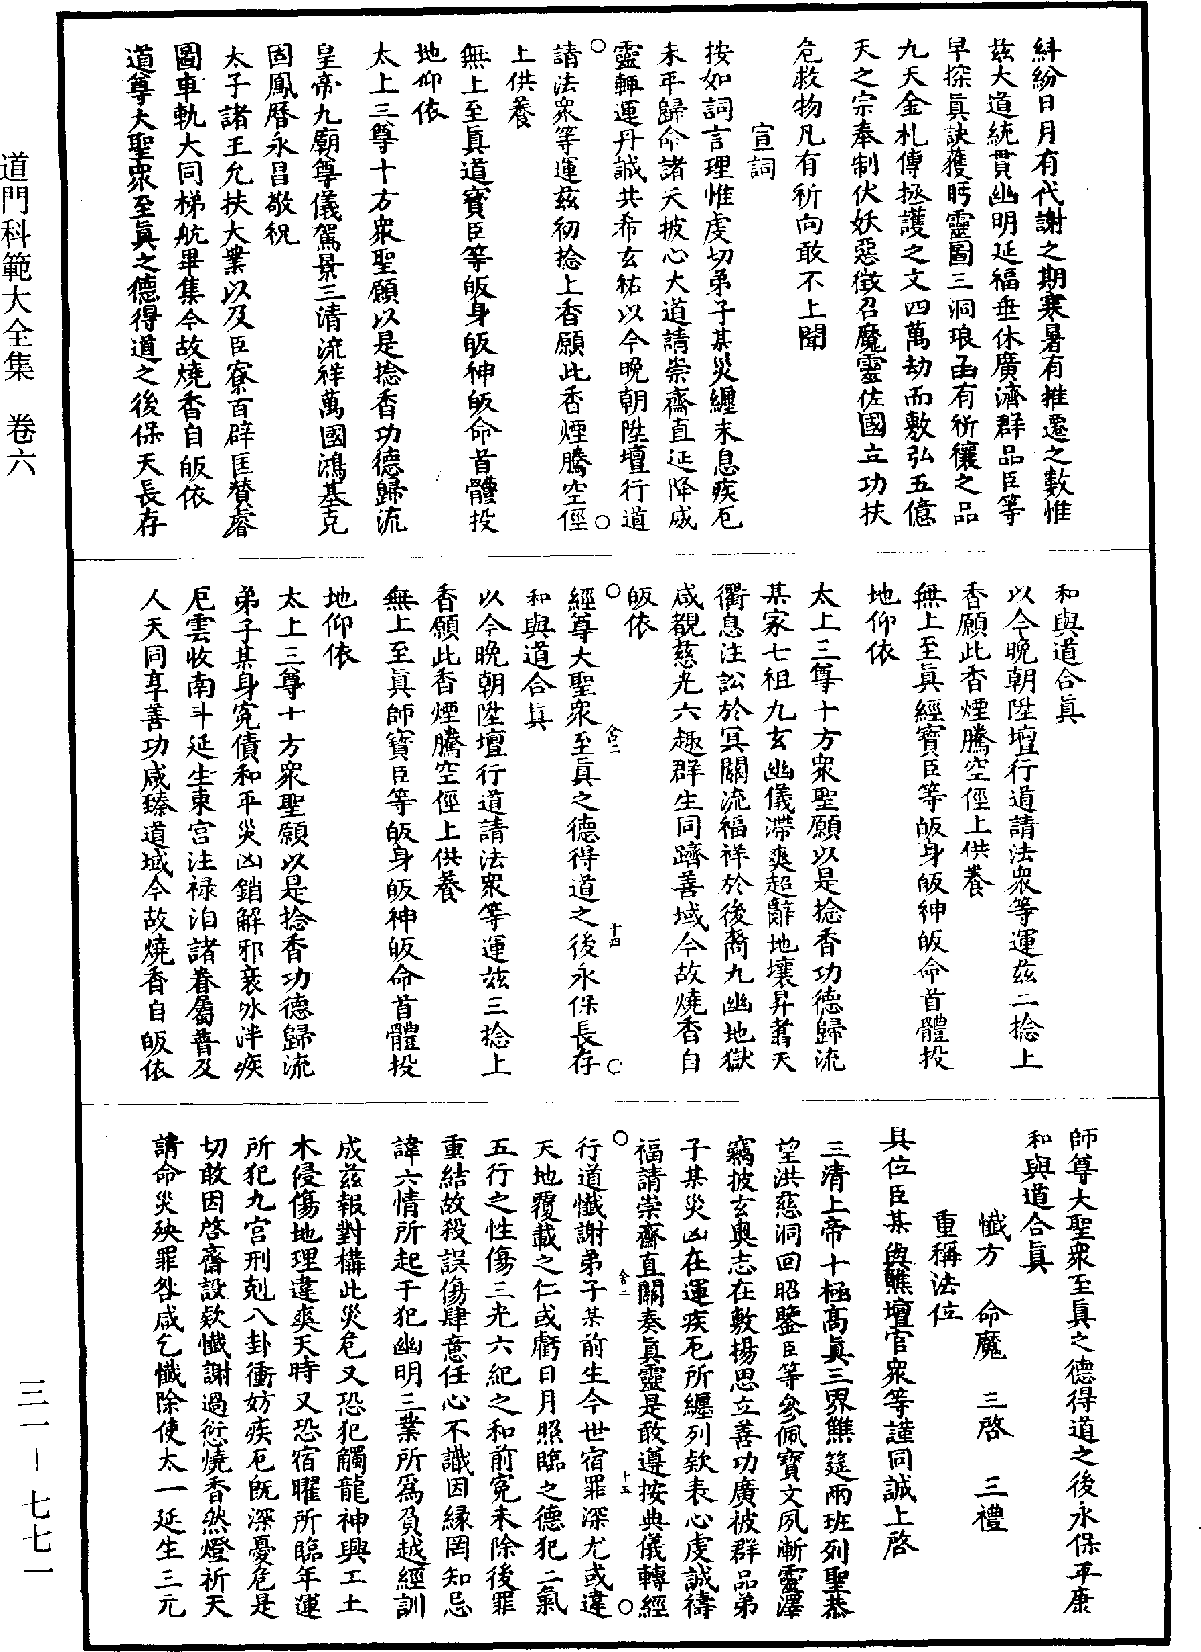 糾紛日月有代謝之期寒暑有推遷之數惟
茲大道統貫幽明延福垂休廣濟群品臣等
早探真訣獲眄靈圖三洞琅函有祈禳之品
九天金札傳拯護之文四萬劫而敷弘五億
天之宗奉制伏妖惡徵召魔靈佐國立功扶
危救物凡有祈向敢不上聞
宣詞
按如詞言理惟虔切弟子某災纏未息疾厄
未平歸命諸天披心大道請崇齋直延降威
靈輙運丹誠共希玄祐以今晚朝陞壇行道
請法衆等運茲初捻上香願此香煙騰空徑
上供養
無上至真道寶臣等皈身皈神皈命首體投
地仰依
太上三尊十方衆聖願以是捻香功德歸流
皇帝九廟尊儀駕景三清流祥萬國鴻基克
固鳳曆永昌敬祝
太子諸王允扶大業以及臣寮百辟匡贊睿
圖車軌大同梯航畢集今故燒香自皈依
道尊大聖衆至真之德得道之後保天長存
和與道合真
以今晚朝陞壇行道請法衆等運茲二捻上
香願此香煙騰空徑上供養
無上至真經寶臣等皈身皈神皈命首體投
地仰依
太上三尊十方衆聖願以是捻香功德歸流
某家七祖九玄幽儀滯爽超辭地壤昇翥天
衢息注訟於冥關流福祥於後裔九幽地獄
咸覩慈光六趣群生同躋善域今故燒香自
皈依
經尊大聖衆至真之德得道之後永保長存
和與道合真
以今晚朝陞壇行道請法衆等運茲三捻上
香願此香煙騰空徑上供養
無上至真師寶臣等皈身皈神皈命首體投
地仰依
太上三尊十方衆聖願以是捻香功德歸流
弟子某身冤債和平災凶銷解邪衺冰泮疾
厄雲收南斗延生東宮注祿洎諸眷屬普及
人天同享善功咸臻道域今故燒香自皈依
師尊大聖衆至真之德得道之後永保平康
和與道合真
懺方　命魔　三啓　三禮
重稱法位
具位臣某與醮壇官衆等謹同誠上啓
三清上帝十極高真三界醮筵兩班列聖恭
望洪慈洞回昭鑒臣等參佩寶文夙漸靈澤
竊披玄奧志在敷揚思立善功廣被群品弟
子某災凶在運疾厄所纏列欵表心虔誠禱
福請崇齋直關奏真靈是敢遵按典儀轉經
行道懺謝弟子某前生今世宿罪深尤或違
天地覆載之仁或虧日月照臨之德犯二氣
五行之性傷三光六紀之和前冤未除後罪
重結故殺誤傷肆意任心不識因緣罔知忌
諱六情所起干犯幽明三業所爲負越經訓
成茲報對構此災危又恐犯觸龍神興工土
木侵傷地理違爽天時又恐宿曜所臨年運
所犯九宮刑剋八卦衝妨疾厄旣深憂危是
切敢因啓齋設欵懺謝過愆燒香然燈祈天
請命災殃罪咎咸乞懺除使太一延生三元
道門科範大全集　卷六
三一－七七一